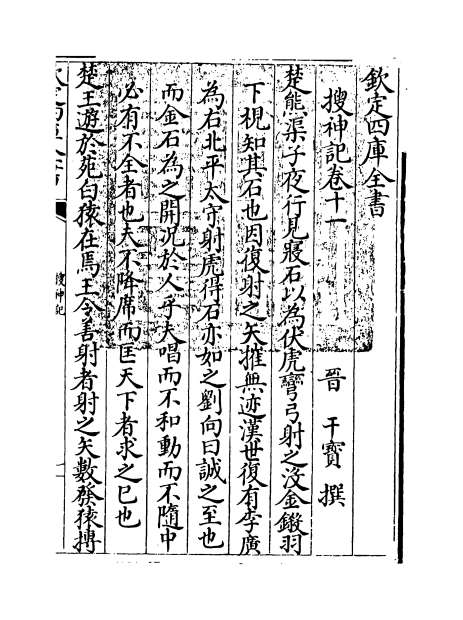 欽定四庫全書
搜神記卷十一
晉 干寳 撰
楚熊渠子夜行見寢石以為伏虎彎弓射之沒金鎩羽
下視知其石也因復射之矢摧無迹漢世復有李廣
為右北平太守射虎得石亦如之劉向曰誠之至也
而金石為之開况於人乎夫唱而不和動而不隨中
必有不全者也夫不降席而匡天下者求之已也
楚王遊於苑白猨在焉王令善射者射之矢數發猨搏
搜神記